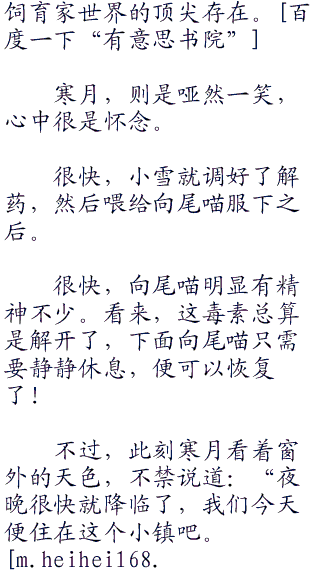 饲育家世界的顶尖存在。[百
度一下“有意思书院”]
寒月，则是哑然一笑，
心中很是怀念。
很快，小雪就调好了解
药，然后喂给向尾喵服下之
后。
很快，向尾喵明显有精
神不少。看来，这毒素总算
是解开了，下面向尾喵只需
要静静休息，便可以恢复
了！
不过，此刻寒月看着窗
外的天色，不禁说道：“夜
晚很快就降临了，我们今天
便住在这个小镇吧。
[m.heihei168.